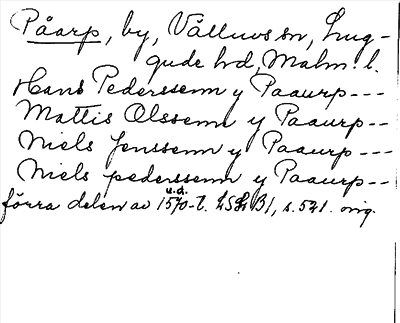 Påarp, by, Välluvs sn, Lugg-
gude hd, Malm. l.
Hans Pederssenn y Paaurp ---
Mattis Olssenn y Paaurp --
Niels Jenssenn y Paaurp ---
Niels pederssenn y Paaurp --
förra delen av 1570-t. LSH B1, s. 521. orig.
u.d.